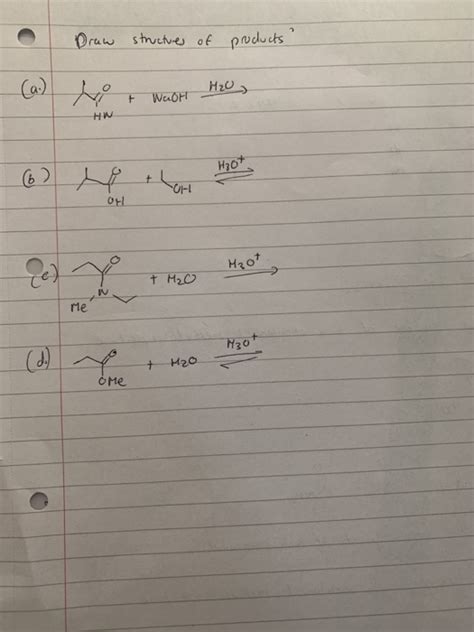 Draw structures of products:
(a.) O HN + NaOH H2O
(b) O OH + OH H3O+
(c) O N Me + H2O H3O+
(d.) O OMe + H2O H3O+